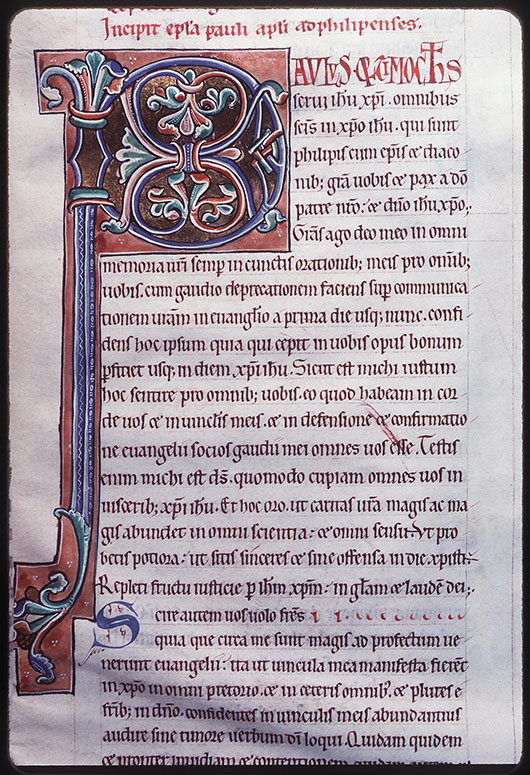 Incipit epła pauli apłi ad philipenses.
PAULUS & TIMOTHS
serui ihu xpi. omnibus
scis in xpo ihu. qui sunt
philipis cum epis & diaco
nib; gra uobis & pax a do
patre nro. & dno ihu xpo.
Gras ago deo meo in omni
memoria uri semp in cunctis orationib; meis pro omnib;
uobis. cum gaudio deprecationem faciens sup communica
tionem uram in euanglio a prima die usq; nunc. confi
dens hoc ipsum quia qui cepit in uobis opus bonum
pficiet usq; in diem xpi ihu. Sicut est michi iustum
hoc sentire pro omnib; uobis. eo quod habeam in cor
de uos & in uinclis meis. & in defensione & confirmatio
ne euangelii socios gaudii mei omnes uos esse. Testis
enim michi est ds. quomodo cupiam omnes uos in
uiscerib; xpi ihu. Et hoc oro. ut caritas ura magis ac ma
gis abundet in omni scientia. & omni sensu. Ut pro
betis potiora. ut sitis sinceres & sine offensa in die xpisti.
Repleti fructu iusticie p ihm xpm. in glam & laudem dei.
Scire autem uos uolo frēs
quia que circa me sunt magis ad profectum ue
nerunt euangelii. ita ut uincula mea manifesta fierent
in xpo in omni pretorio. & in ceteris omnib; & plures e
frib; in dno. confidentes in uinculis meis abundantius
audire sine timore uerbum dni loqui. Quidam quidem
& propter inuidiam & contentionem